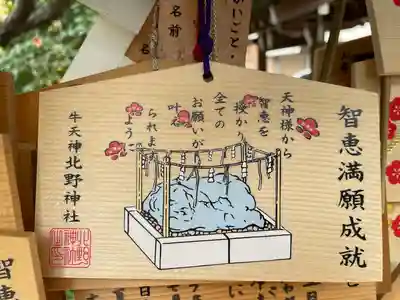 名前
智恵満願成就
天神様から
智恵を
授かり
全ての
お願いが
叶え
られます
ように
牛天神北野神社
智恵